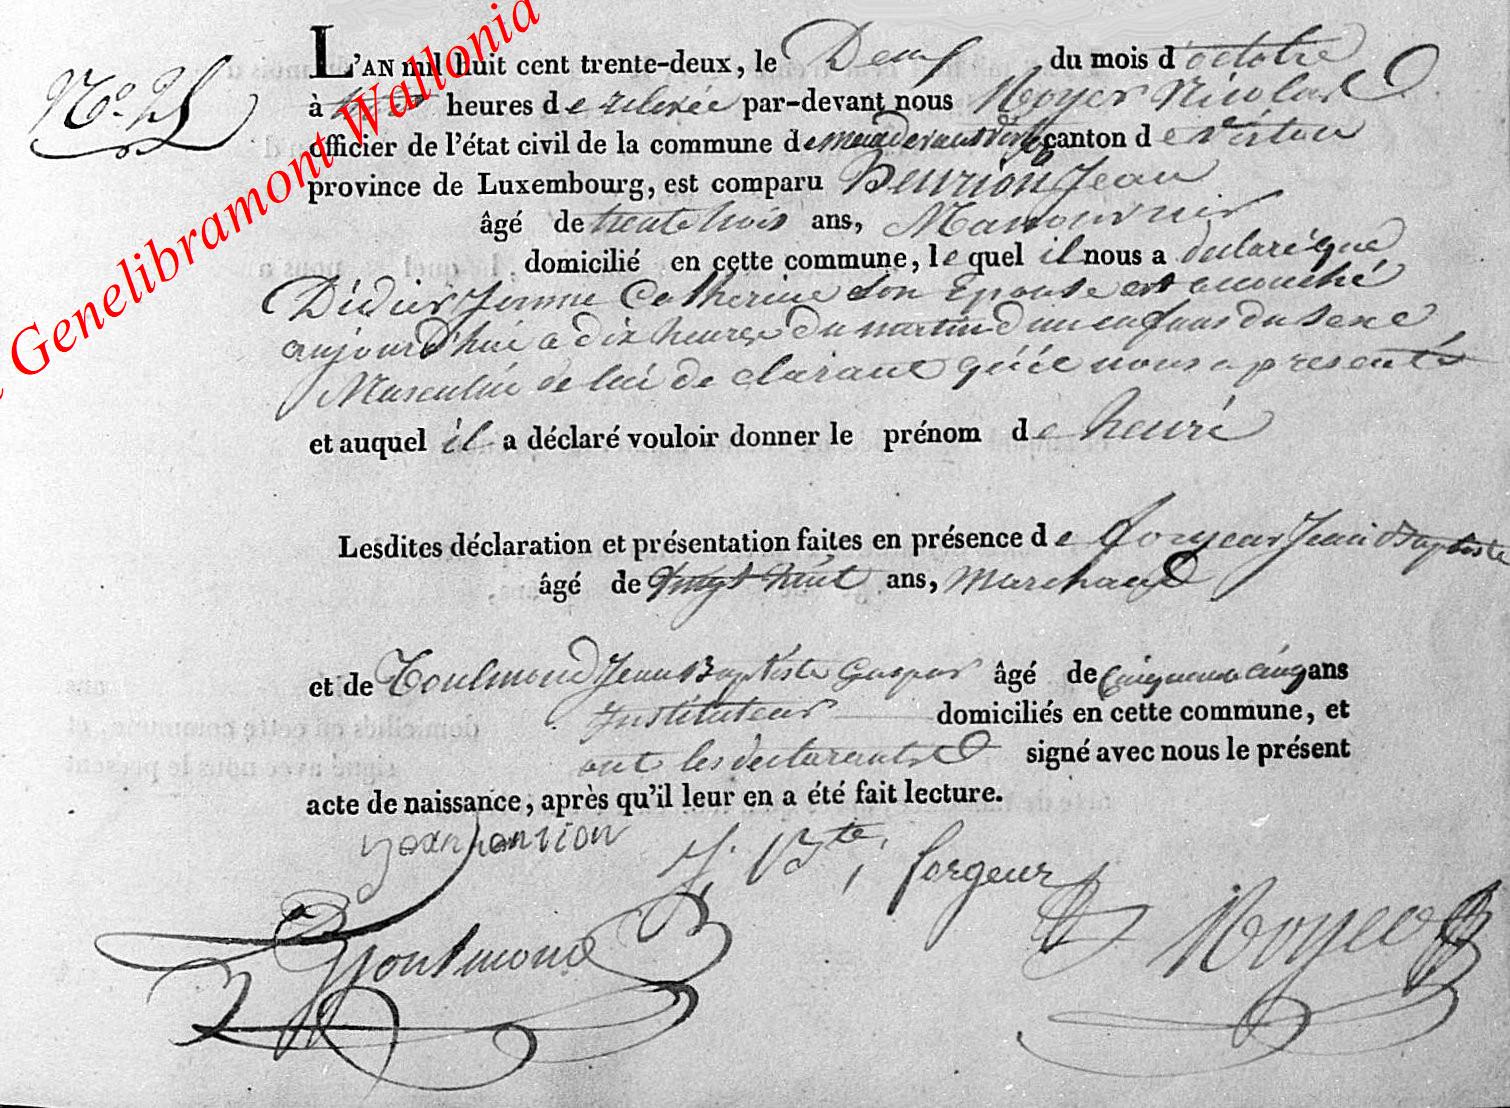 Genelibramont Wallonia
L'AN mil huit cent trente-deux, le Deux du mois d'octobre
à heures de relevée par-devant nous Noyer Nicolas
officier de l'état civil de la commune de canton de virton
province de Luxembourg, est comparu Henrion Jean
âgé de trente trois ans, Manouvrier
domicilié en cette commune, lequel il nous a declaré que
Didier femme Catherine Son Epouse est accouché
aujourd'hui a dix heures du martin d'un enfans du Sexe
Masculin de lui declarant qu'il nous a presenté
et auquel il a déclaré vouloir donner le prénom de henri
Lesdites déclaration et présentation faites en présence de forgeur Jean Baptiste
âgé de vingt huit ans, Marchand
et de Toulmond Jean Baptiste Gaspar âgé de Cinquante cinq ans
Instituteur domiciliés en cette commune, et
ont les declarants signé avec nous le présent
acte de naissance, après qu'il leur en a été fait lecture.
jean henrion
J. Bte, forgeur
Toulmond
Noyer